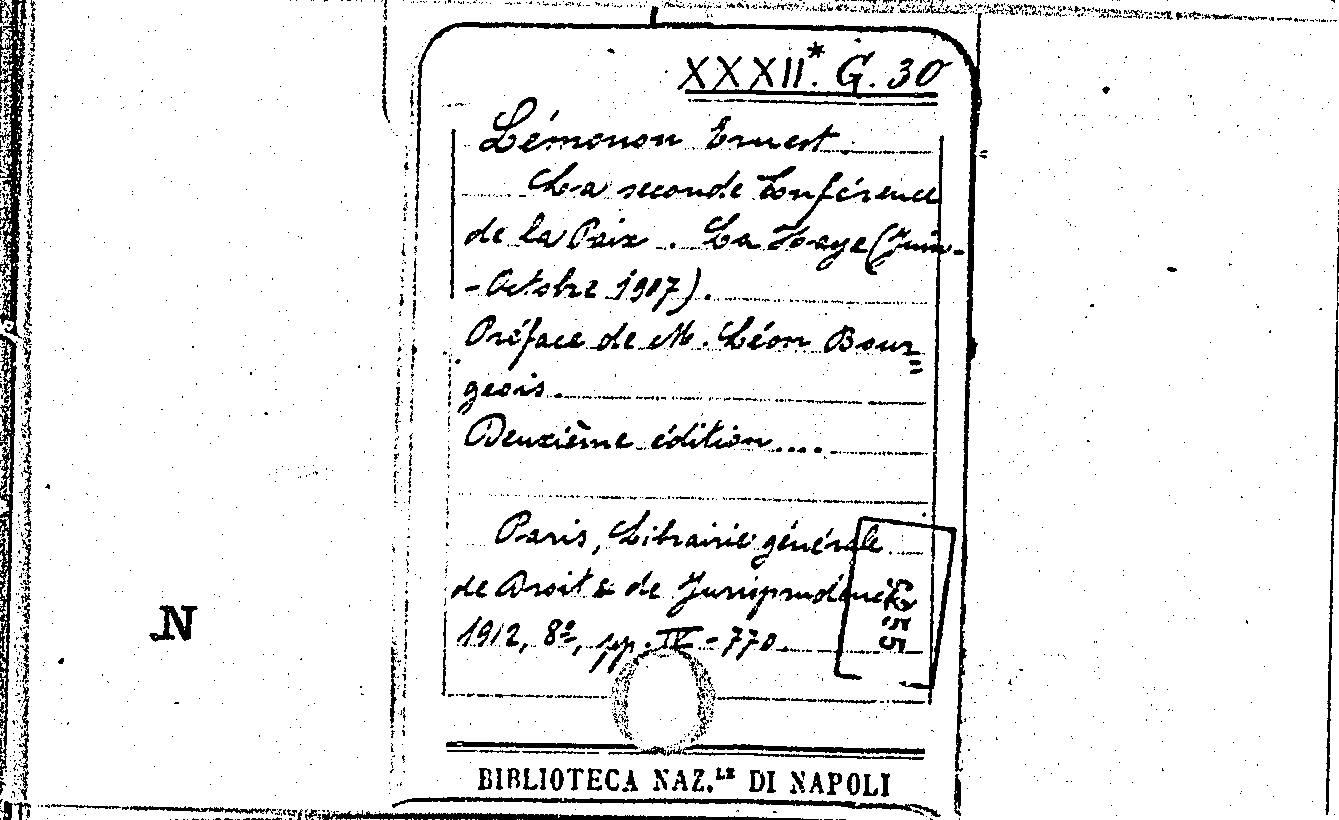 XXXII*. G. 30
Lémonon Ernest.
La seconde Conférence
de la Paix. La Haye (Juin-
-Octobre 1907).
Préface de M. Léon Bour=
geois.
Deuxième édition....
Paris, Librairie générale
de Droit & de Jurisprudence
1912, 8º, pp. IV-770.
N
BIBLIOTECA NAZ.LE DI NAPOLI